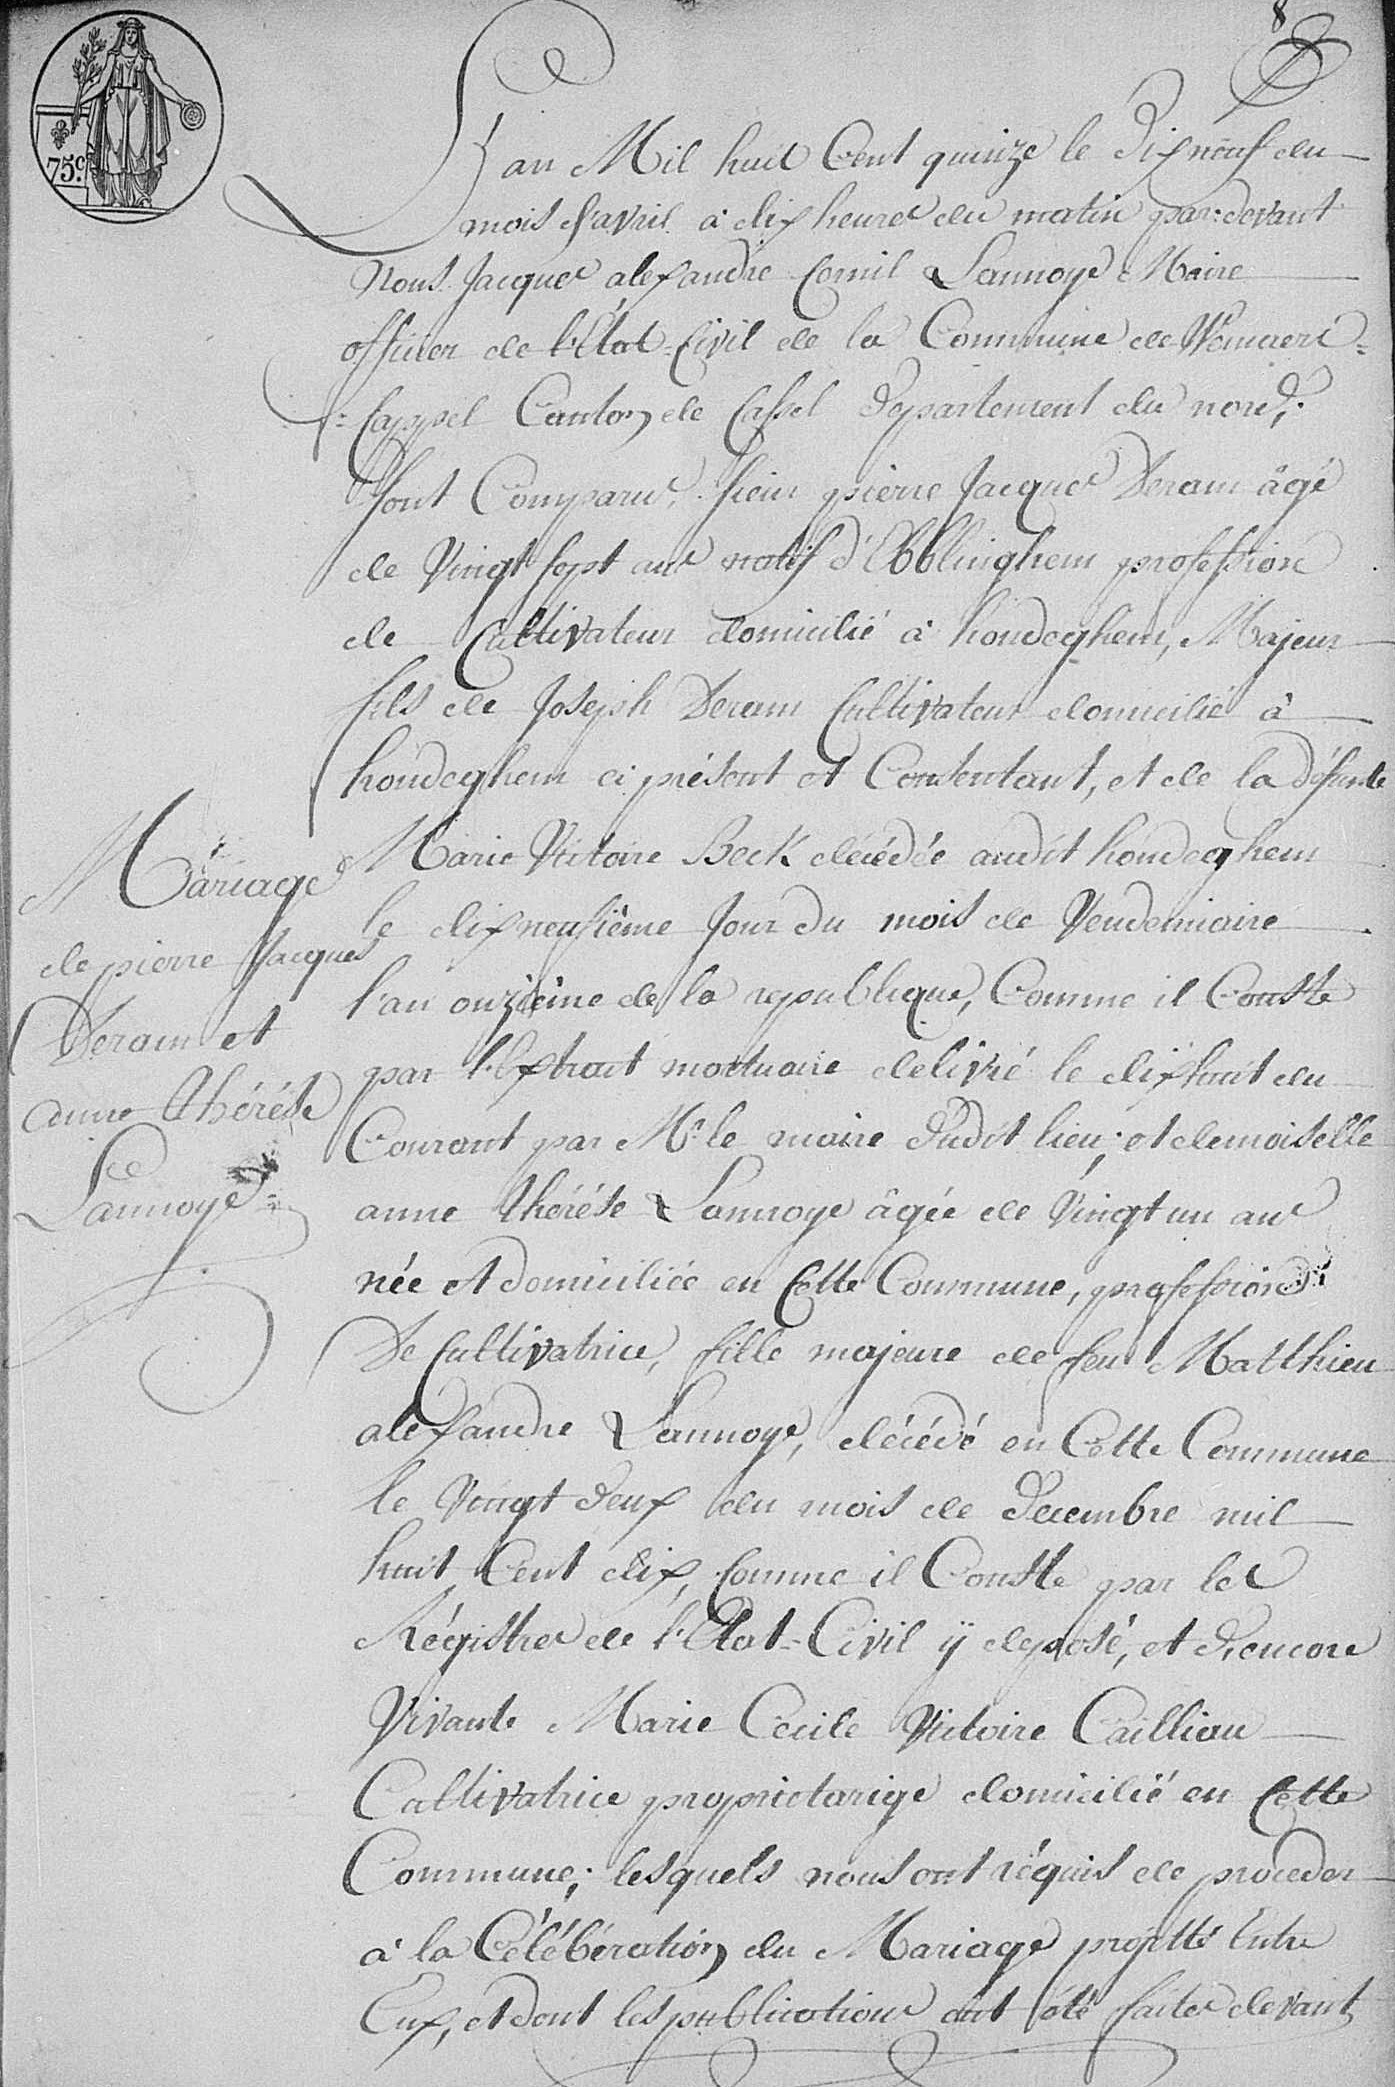 8
75c.
L'an Mil huit Cent quinze le Dix neuf du
mois d'avril à dix heures du matin par-devant
Nous Jacques alexandre Cornil Lannoye Maire
officier de l'Etat-Civil de la Commune de Wemaers-
=Cappel Canton de Cassel Departement du nord,
sont Comparus, pierre Jacques Deram âgé
de Vingt sept ans natif d'Ebblinghem profession
de Cultivateur domicilié à hondeghem, Majeur
fils de Joseph Deram Cultivateur domicilié à
hondeghem ci présent et Consentant, et de la défunte
Marie Victoire Beck décédée audit hondeghem
le dix neufième Jour du mois de Vendemiaire
l'an onzième de la republique, Comme il Conste
par l'Extrait mortuaire delivré le dix huit du
Courant par Mr. le maire dudit lieu; et demoiselle
anne thérése Lannoye âgée de Vingt un ans
née et domiciliée en Cette Commune, profession
De Cultivatrice, fille majeure de feu Matthieu
alexandre Lannoye, décédé en Cette Commune
le Vingt deux du mois de Decembre mil
huit Cent dix, Comme il Conste par les
Régistres de l'Etat-Civil ÿ deposé, et d'encore
Vivante Marie Cecile Victoire Cailliau
Cultivatrice proprietarige domicilié en Cette
Commune; lesquels nous ont réquis de proceder
à la Célébération du Mariage projetté Entre
Eux, et dont les publications ont été faites devant
Mariage
de pierre Jacques
Deram et
anne thérése
Lannoye=